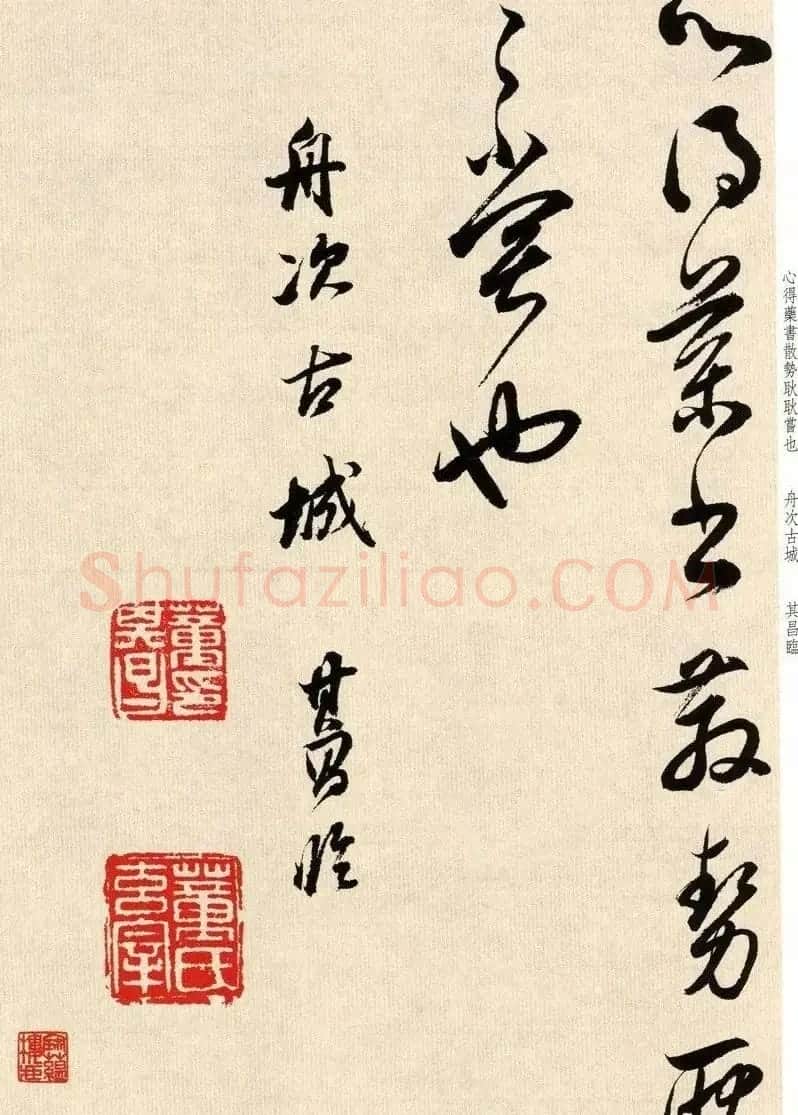 心得藥書散勢耿
〻嘗也
舟次古城 其昌臨
董氏玄宰
心得藥書散勢耿耿嘗也 舟次古城 其昌臨
Shufaziliao.COM